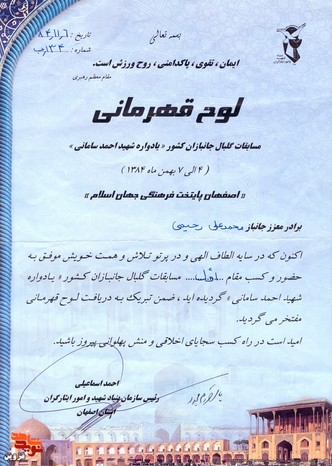 بسمه تعالی
تاریخ : ۸۴/۱۱/۶
شماره :
ایمان ، تقوی ، پاکدامنی ، روح ورزش است.
مقام معظم رهبری
لوح قهرمانی
مسابقات گلبال جانبازان کشور « یادواره شهید احمد سامانی »
( ۴ الی ۷ بهمن ماه ۱۳۸۴ )
« اصفهان پایتخت فرهنگی جهان اسلام »
برادر معزز جانباز محمدعلی رحیمی
اکنون که در سایه الطاف الهی و در پرتو تلاش و همت خویش موفق به
حضور و کسب مقام .... مسابقات گلبال جانبازان کشور « یادواره
شهید احمد سامانی » گردیده اید ، ضمن تبریک به دریافت لوح قهرمانی
مفتخر می گردید.
امید است در راه کسب سجایای اخلاقی و منش پهلوانی پیروز باشید.
احمد اسماعیلی
رئیس سازمان بنیاد شهید و امور ایثارگران
استان اصفهان